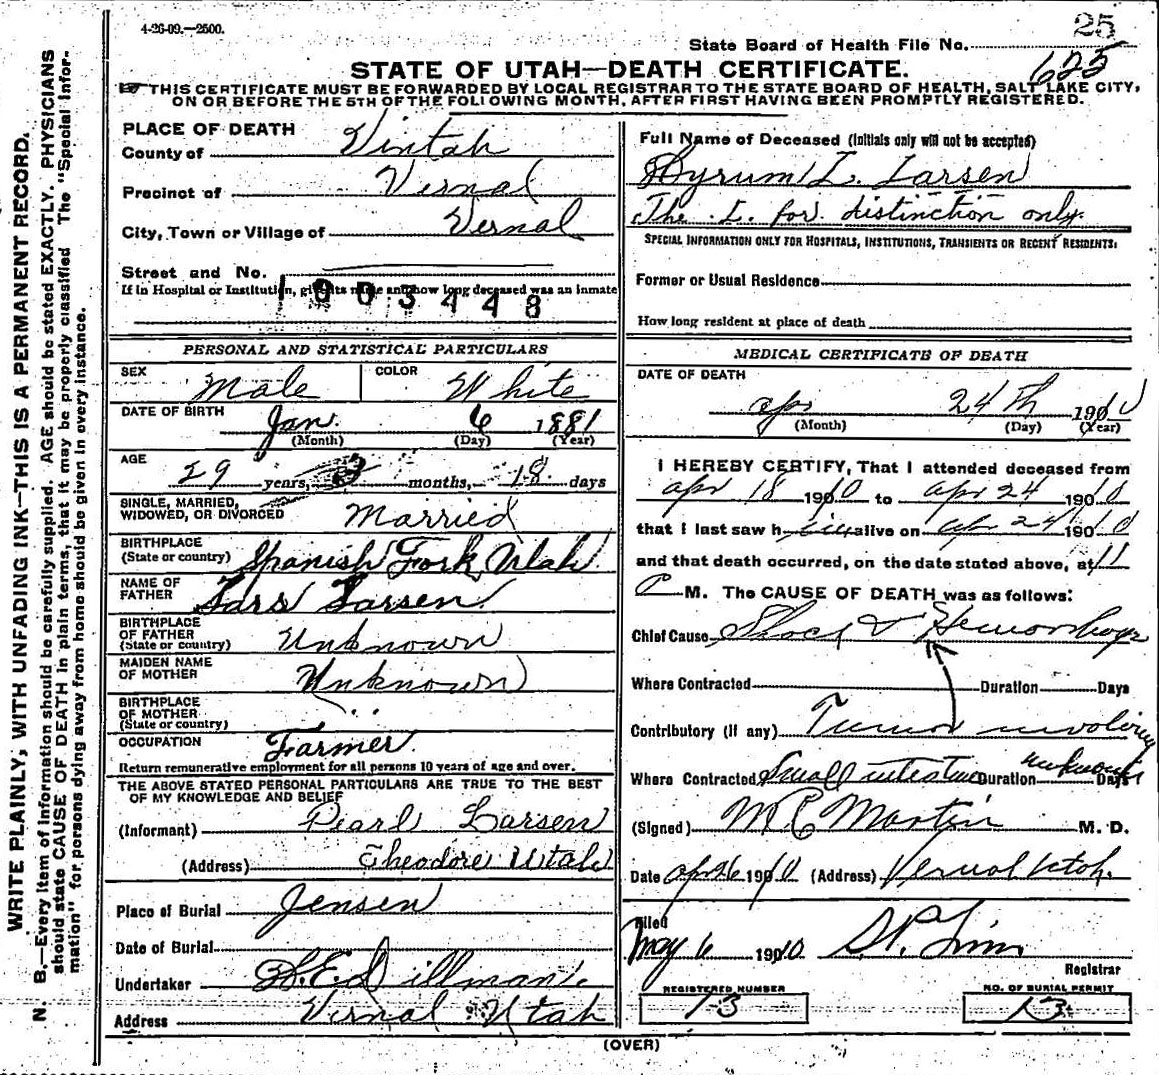 4-26-09.—2500.
25
State Board of Health File No.
625
STATE OF UTAH—DEATH CERTIFICATE.
THIS CERTIFICATE MUST BE FORWARDED BY LOCAL REGISTRAR TO THE STATE BOARD OF HEALTH, SALT LAKE CITY,
ON OR BEFORE THE 5TH OF THE FOLLOWING MONTH, AFTER FIRST HAVING BEEN PROMPTLY REGISTERED.
WRITE PLAINLY, WITH UNFADING INK—THIS IS A PERMANENT RECORD.
N. B.—Every item of information should be carefully supplied. AGE should be stated EXACTLY. PHYSICIANS
should state CAUSE OF DEATH in plain terms, that it may be properly classified The "Special Infor-
mation" for persons dying away from home should be given in every instance.
PLACE OF DEATH
County of Uintah
Precinct of Vernal
City, Town or Village of Vernal
Street and No.
If in Hospital or Institution, give its name and how long deceased was an inmate
1003448
PERSONAL AND STATISTICAL PARTICULARS
SEX Male COLOR White
DATE OF BIRTH
Jan. 6 1881
(Month) (Day) (Year)
AGE
29 years, 3 months, 18 days
SINGLE, MARRIED,
WIDOWED, OR DIVORCED Married
BIRTHPLACE
(State or country) Spanish Fork Utah
NAME OF
FATHER Lars Larsen
BIRTHPLACE
OF FATHER
(State or country) Unknown
MAIDEN NAME
OF MOTHER Unknown
BIRTHPLACE
OF MOTHER
(State or country) "
OCCUPATION Farmer
Return remunerative employment for all persons 10 years of age and over.
THE ABOVE STATED PERSONAL PARTICULARS ARE TRUE TO THE BEST
OF MY KNOWLEDGE AND BELIEF
(Informant) Pearl Larsen
(Address) Theodore Utah
Place of Burial Jensen
Date of Burial
Undertaker Dillman
Address Vernal Utah
Full Name of Deceased (Initials only will not be accepted)
Hyrum L. Larsen
The L. for distinction only.
SPECIAL INFORMATION ONLY FOR HOSPITALS, INSTITUTIONS, TRANSIENTS OR RECENT RESIDENTS:
Former or Usual Residence
How long resident at place of death
MEDICAL CERTIFICATE OF DEATH
DATE OF DEATH
apr 24th 1910
(Month) (Day) (Year)
I HEREBY CERTIFY, That I attended deceased from
apr 18 1910 to apr 24 1910
that I last saw him alive on apr 24 1910
and that death occurred, on the date stated above, at 11
P M. The CAUSE OF DEATH was as follows:
Chief Cause Shock & Hemorrhage
Where Contracted Duration Days
Contributory (if any) Tumor involving
Where Contracted Small intestine Duration unknown Days
(Signed) M. D. Martin
Date apr 26 1910 (Address) Vernal Utah.
Filed
May 6 1910
Registrar
REGISTERED NUMBER
13
NO. OF BURIAL PERMIT
13
(OVER)